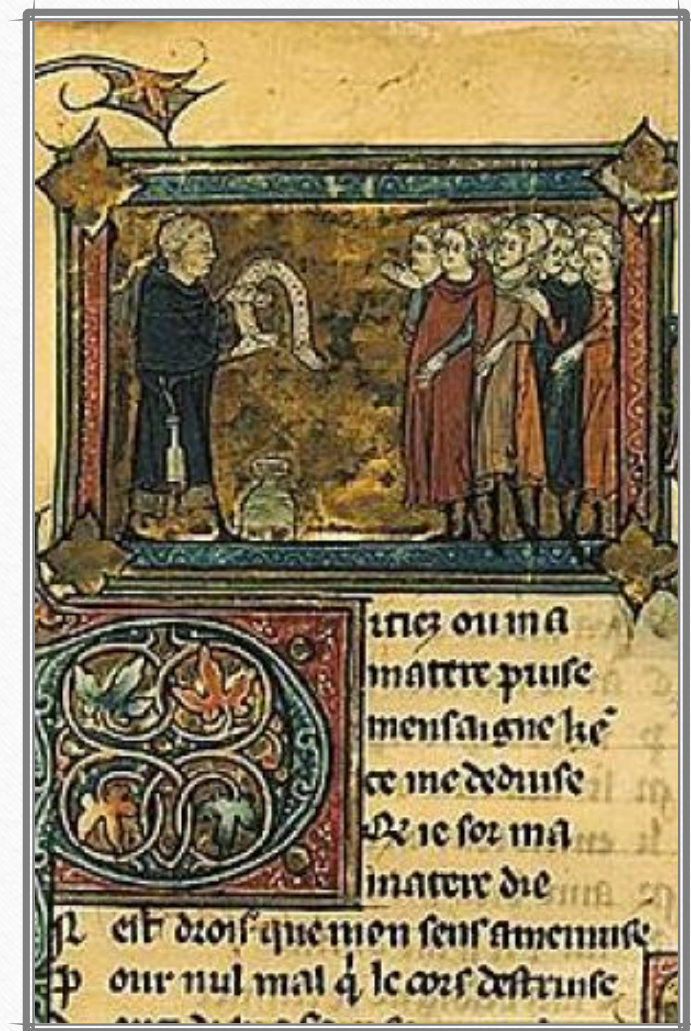 Pitiez ou ma
matere puise
mensaigne kē
ce me deduise
Qe ie sor ma
matere die
N est drois que mon sens amenuise
P our nul mal q̍ le cors destruise